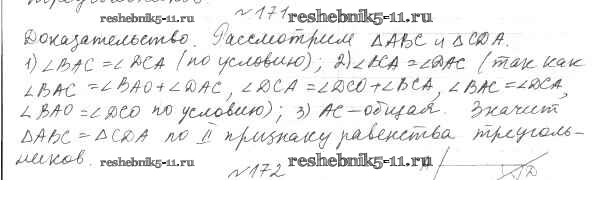 №171
reshebnik5-11.ru reshebnik5-11.ru
Доказательство. Рассмотрим △ABC и △CDA.
1) ∠BAC = ∠DCA (по условию); 2) ∠BCA = ∠DAC (так как
∠BAC = ∠BAO + ∠DAC, ∠DCA = ∠DCO + ∠BCA, ∠BAC = ∠DCA,
∠BAO = ∠DCO по условию); 3) AC – общая. Значит
△ABC = △CDA по II признаку равенства треуголь-
ников. reshebnik5-11.ru reshebnik5-11.ru
№172